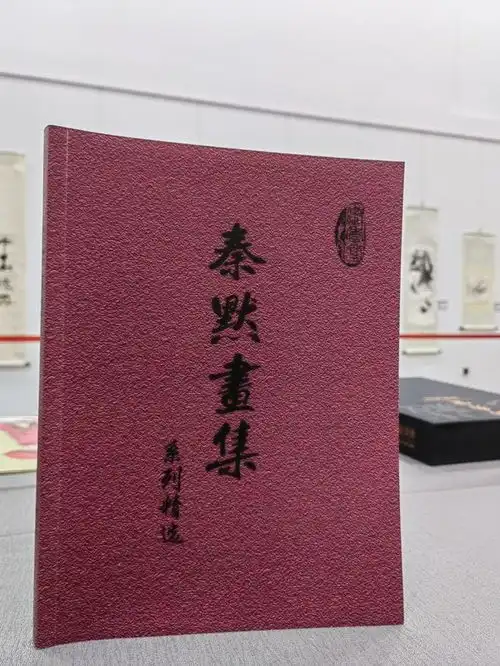 秦默畫集
系列精选